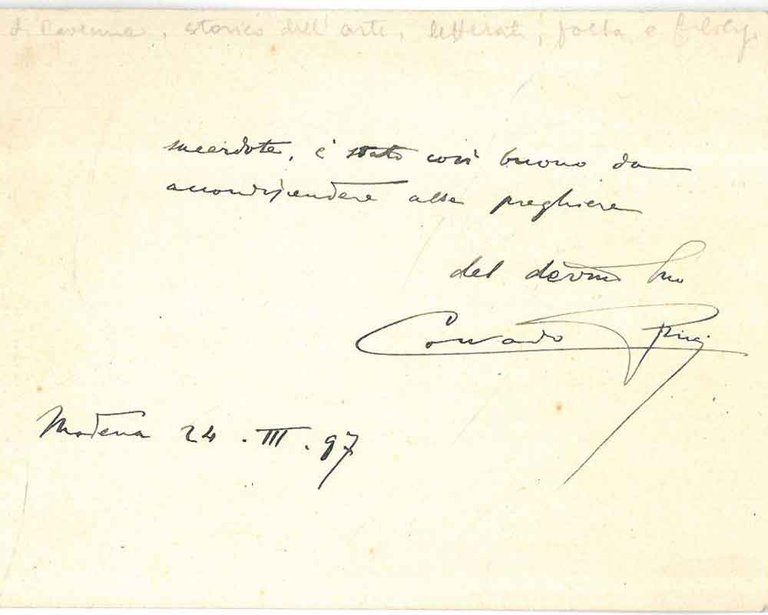 di Ravenna, storico dell'arte, letterato, poeta e filologo
sacerdote, è stato così buono da
accondiscendere alle preghiere
del devmo Suo
Corrado Ricci
Modena 24 . III . 97